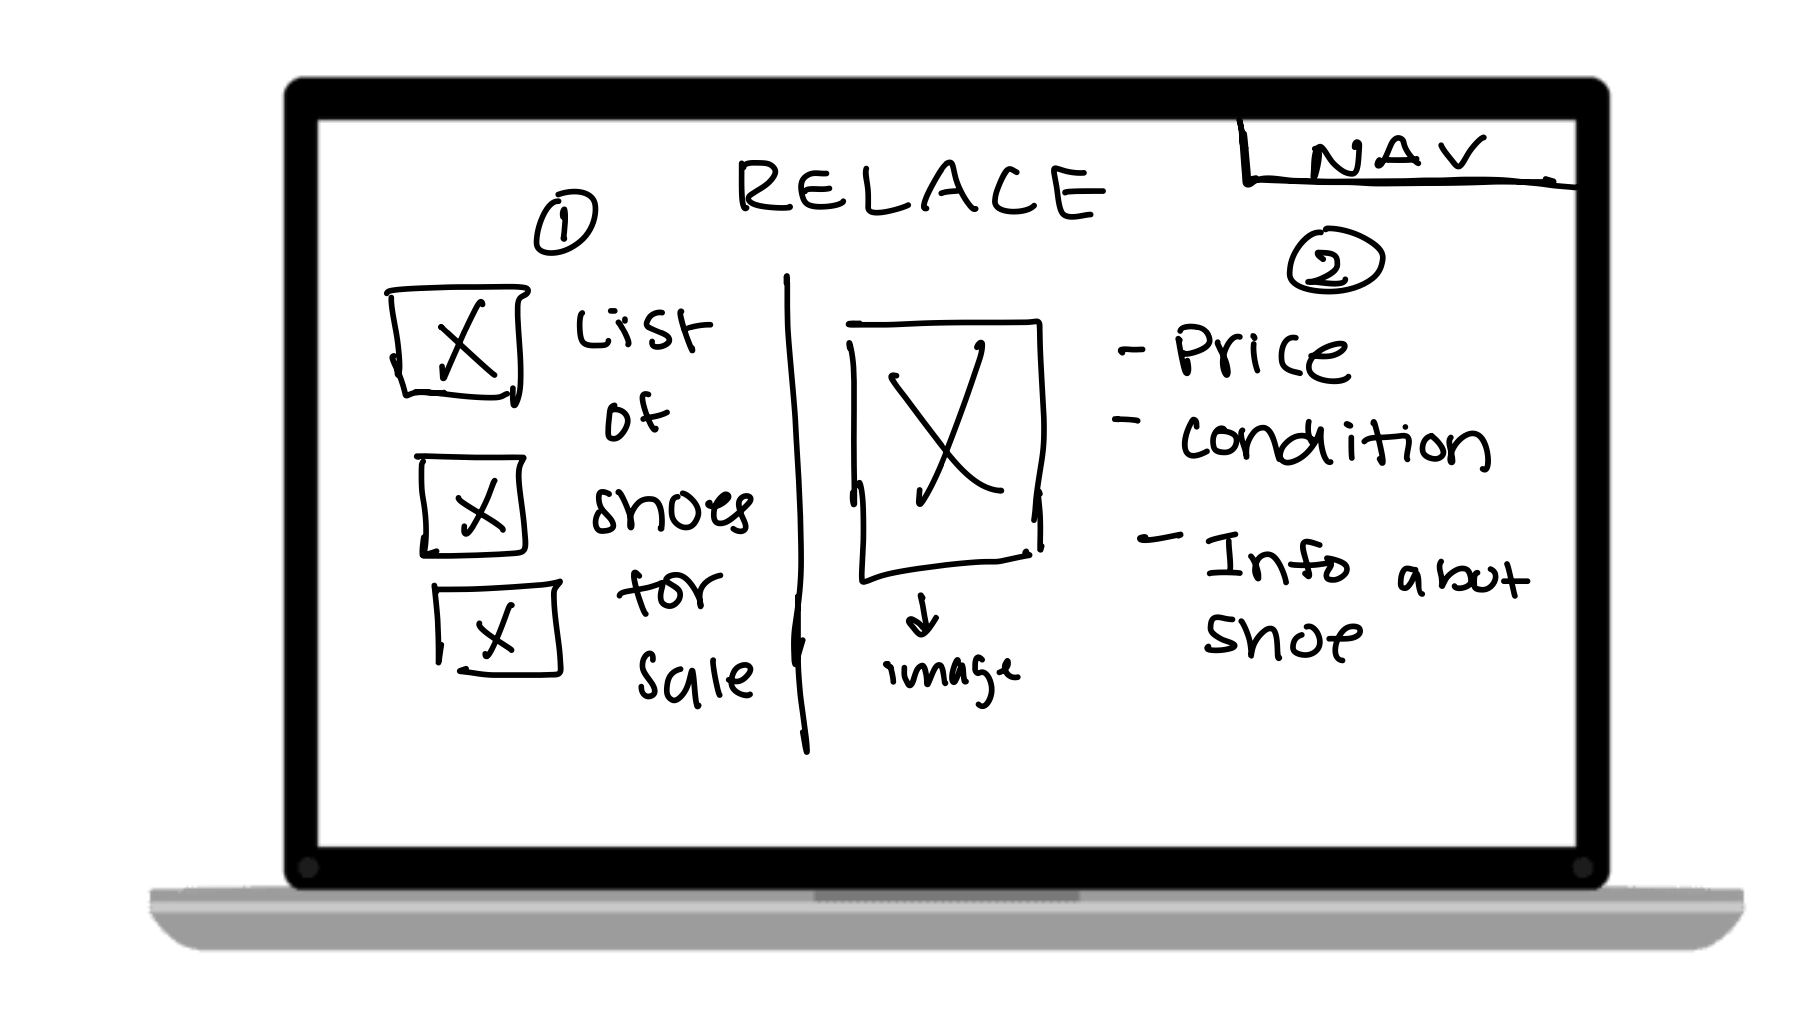 RELACE
NAV
1
List
of
shoes
for
sale
image
2
- Price
- condition
- Info about
shoe